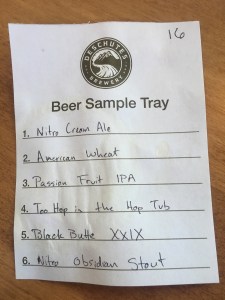 16
DESCHUTES
BREWERY
Beer Sample Tray
1. Nitro Cream Ale
2. American Wheat
3. Passion Fruit IPA
4. Too Hop in the Hop Tub
5. Black Butte XXIX
6. Nitro Obsidian Stout